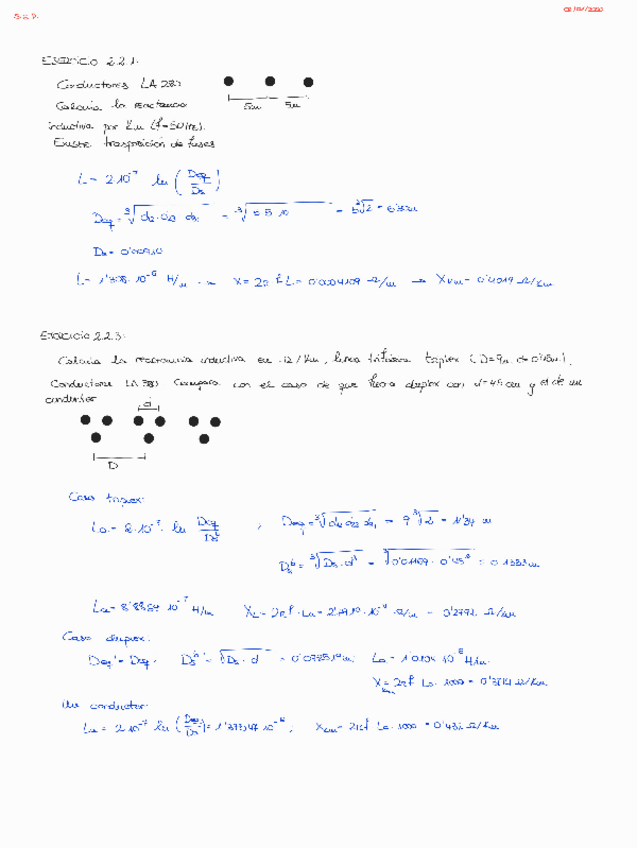 02/04/2020
EJERCICIO 2.2.1:
Conductores LA 280
Calcula la reactancia
inductiva por Km (f=50Hz).
Existe trasposición de fases
5m 5m
L = 2·10⁻⁷ ln (Deq/Ds)
Deq = ∛(d12·d23·d31) = ∛(5·5·10) = 5∛2 = 6'3m
L = 1'308·10⁻⁶ H/m X = 2π f L = 0'0004109 Ω/m → XKm = 0'4019 Ω/Km
EJERCICIO 2.2.3:
Calcula la reactancia inductiva en Ω/Km, línea trifásica triplex (D=9m, d=0'45m),
Conductores LA 380 Compara con el caso de que fuera duplex con d=45cm y el de un
conductor
d
D
Caso triplex:
La = 2·10⁻⁷ · ln Deq/Dsᵇ , Deq = ∛(d12 d23 d31) = 9∛2 = 11'34 m
Dsᵇ = ∛(Ds·d²) = ∛(0'01109·0'45²) = 0'1323m
La = 8'8864·10⁻⁷ H/m XL = 2πf·La = 2'7910·10⁻⁴ Ω/m = 0'2792 Ω/Km
Caso duplex:
Deq' = Deq, Dsᵇ' = √(Ds·d) La = 1'0104·10⁻⁶ H/m.
XKm = 2πf La·1000 Ω/Km
Un conductor:
La = 2·10⁻⁷ ln (Deq/Ds) = 1'37347·10⁻⁶, XKm = 2πf La·1000 = 0'432 Ω/Km